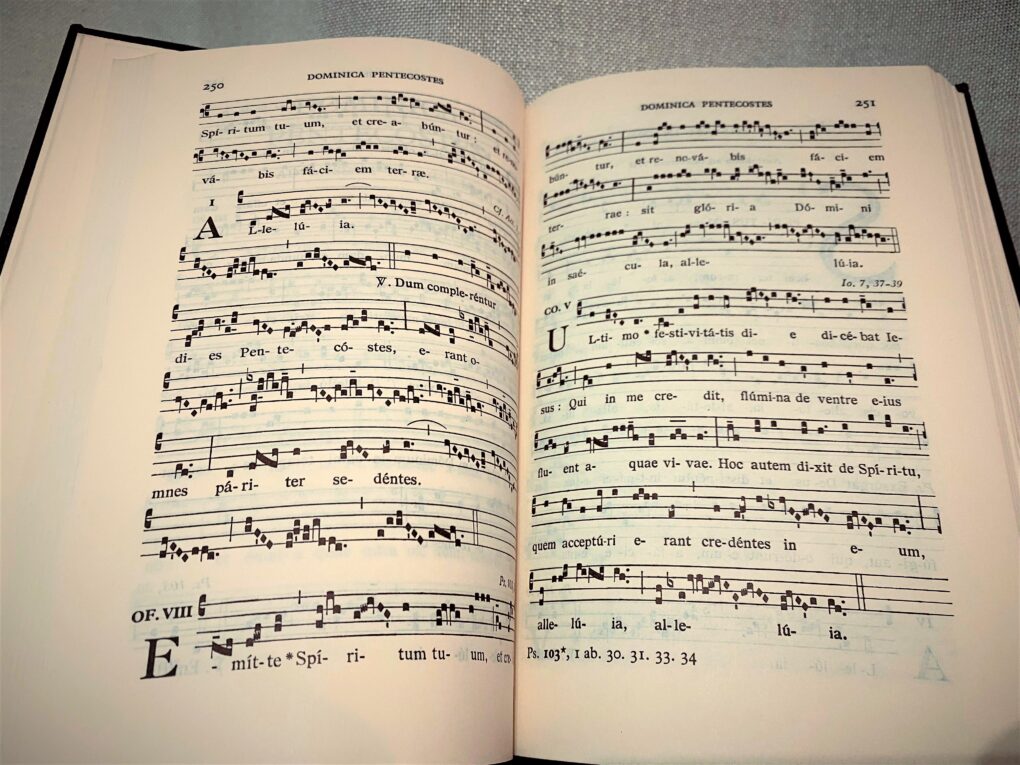 250
DOMINICA PENTECOSTES
Spí- ri- tum tu- um, et cre- a- bún- tur : et re-
vá- bis fá- ci- em ter- ræ.
I
Cf. Ac.
A L-le- lú- ia.
℣. Dum comple-réntur
di- es Pen- te- có- stes, e- rant o-
mnes pá- ri- ter se- déntes.
Ps. 103
OF. VIII
E mít-te * Spí- ri- tum tu- um, et cre
DOMINICA PENTECOSTES
251
bún- tur, et re- no-vá- bis fá- ci- em
ter- rae : sit gló- ri- a Dó- mi- ni
in saé- cu- la, al-le- lú-ia.
Io. 7, 37-39
CO. V
U L-ti- mo * fe-sti-vi-tá-tis di- e di-cé-bat Ie-
sus : Qui in me cre- dit, flúmi-na de ventre e-ius
flu- ent a- quae vi- vae. Hoc autem di-xit de Spí-ri-tu,
quem acceptú-ri e- rant cre-déntes in e- um,
alle- lú- ia, al-le- lú- ia.
Ps. 103*, 1 ab. 30. 31. 33. 34